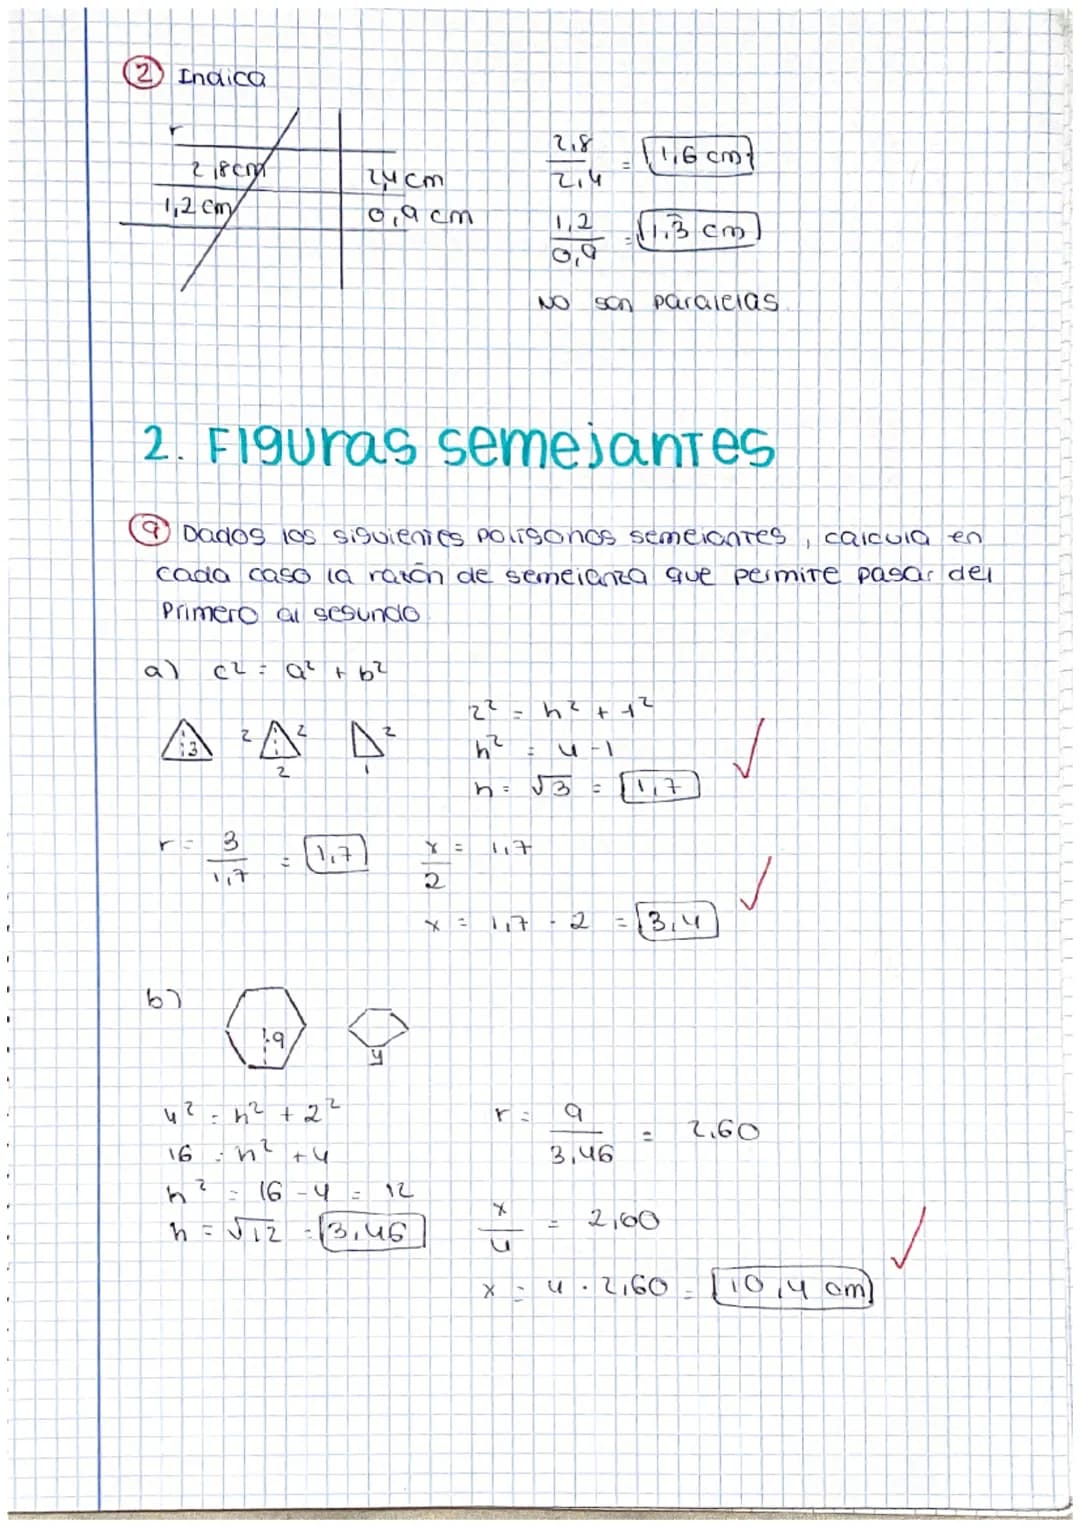 2 Indica
r
2,8 cm 2,4 cm
1,2 cm 0,9 cm
2,8 / 2,4 = 1,6 cm
1,2 / 0,9 = 1,3 cm
NO son paralelas.
2. Figuras semejantes
9 Dados los siguientes polígonos semejantes, calcula en
cada caso la razón de semejanza que permite pasar del
Primero al segundo
a) c² = a² + b²
3 2 2 2 2 1
2² = h² + 1²
h² = 4 - 1
h = √3 = 1,7
r = 3 / 1,7 = 1,7
x / 2 = 1,7
x = 1,7 · 2 = 3,4
b)
9 4
4² = h² + 2²
16 = h² + 4
h² = 16 - 4 = 12
h = √12 = 3,46
r = 9 / 3,46 = 2,60
x / 4 = 2,60
x = 4 · 2,60 = 10,4 cm